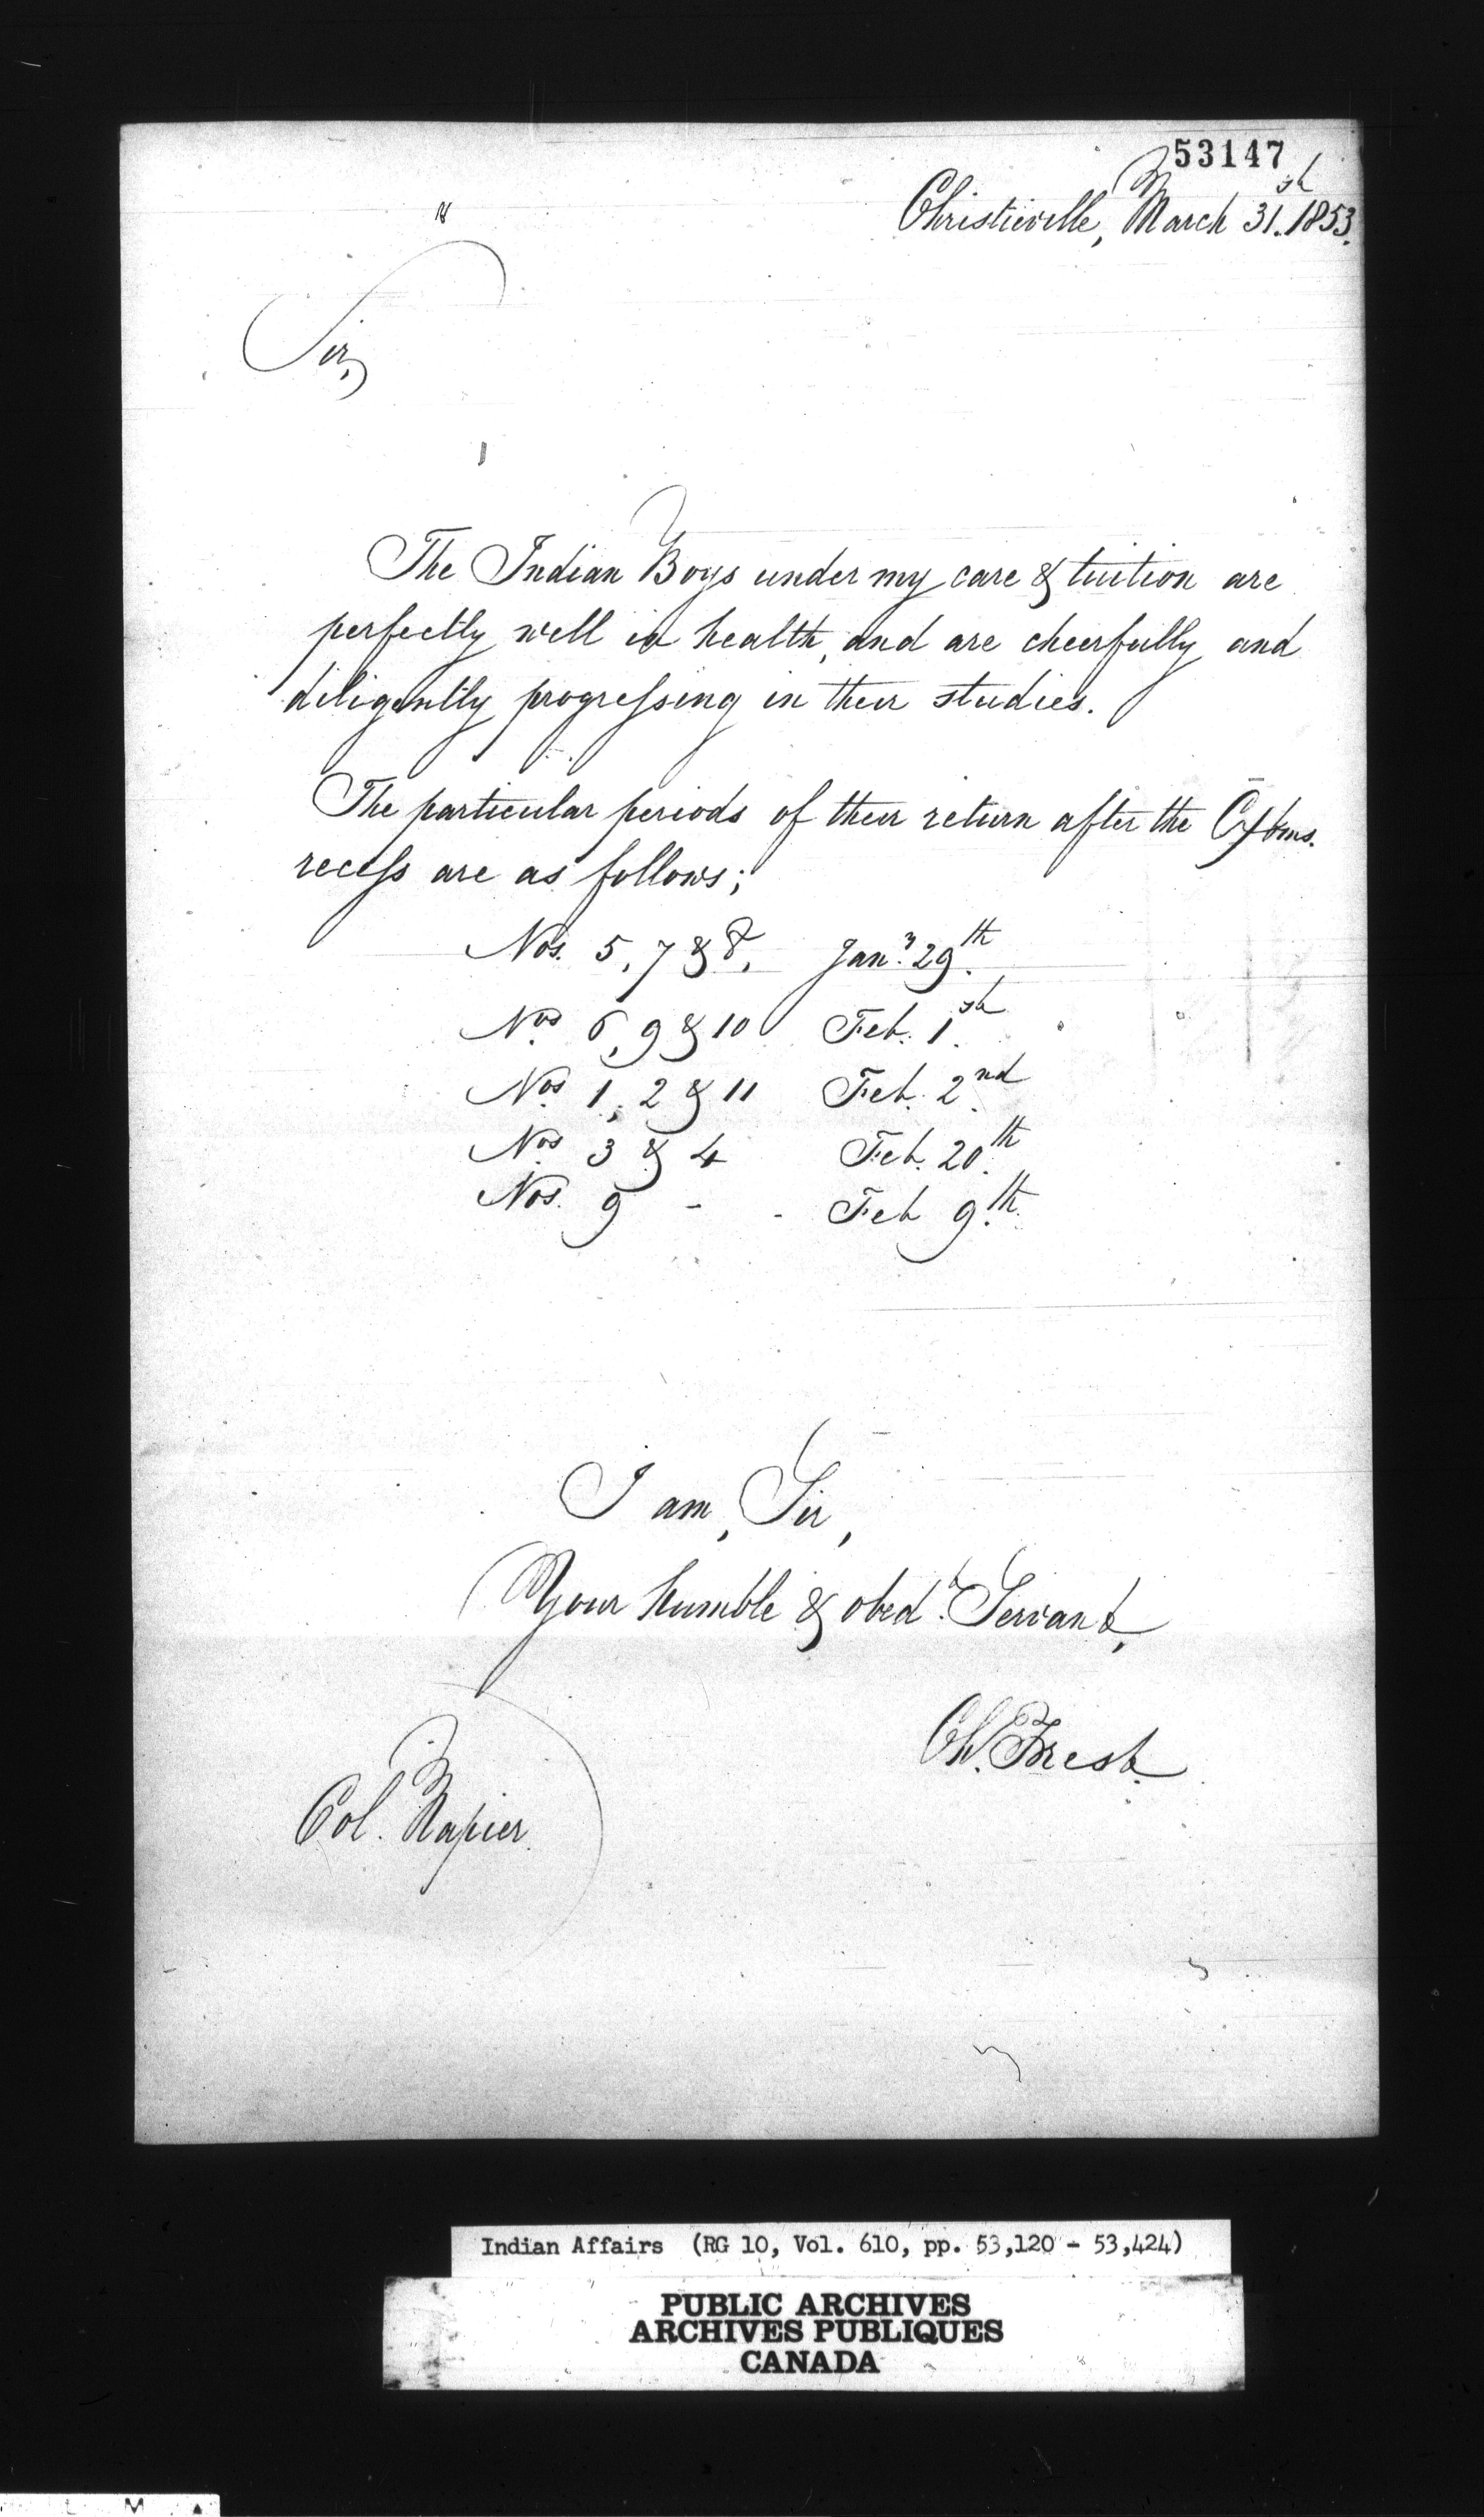 53147
Christieville, March 31st. 1853.
Sir,
The Indian Boys under my care & tuition are
perfectly well in health, and are cheerfully and
diligently progressing in their studies.
The particular periods of their return after the Xtms.
recess are as follows;
Nos. 5, 7 & 8, Jany. 29th.
Nos. 6, 9 & 10 Feb. 1st.
Nos. 1, 2 & 11 Feb. 2nd.
Nos. 3 & 4 Feb. 20th.
Nos. 9 - - Feb 9th.
I am, Sir,
Your humble & obedt. Servant,
Ch. Forest.
Col. Napier.
Indian Affairs (RG 10, Vol. 610, pp. 53,120 - 53,424)
PUBLIC ARCHIVES
ARCHIVES PUBLIQUES
CANADA